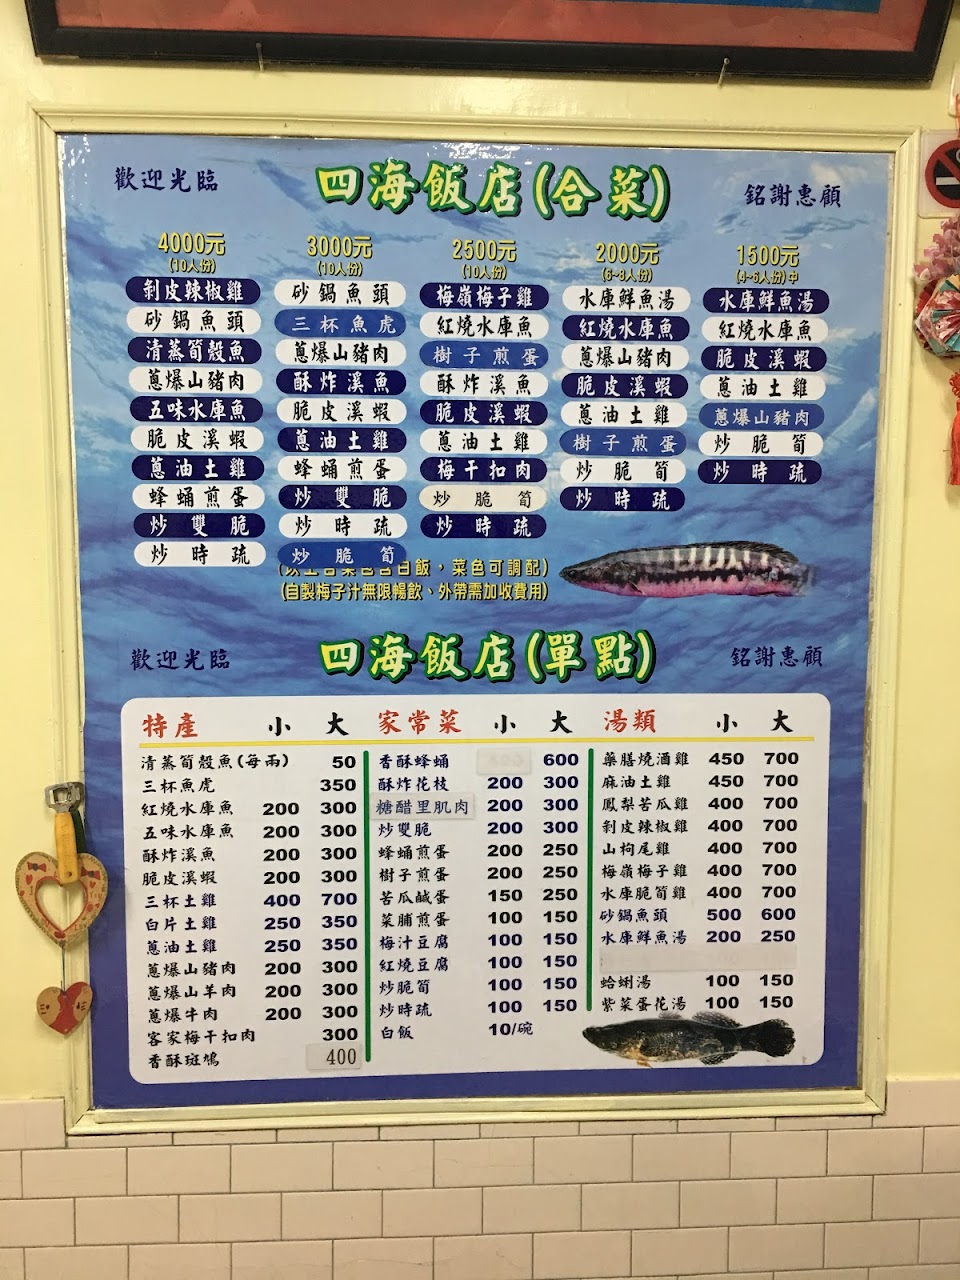 歡迎光臨 四海飯店(合菜) 銘謝惠顧
4000元 3000元 2500元 2000元 1500元
(10人份) (10人份) (10人份) (6~8人份) (4~6人份)中
剝皮辣椒雞 砂鍋魚頭 梅嶺梅子雞 水庫鮮魚湯 水庫鮮魚湯
砂鍋魚頭 三杯魚虎 紅燒水庫魚 紅燒水庫魚 紅燒水庫魚
清蒸筍殼魚 蔥爆山豬肉 樹子煎蛋 蔥爆山豬肉 脆皮溪蝦
蔥爆山豬肉 酥炸溪魚 酥炸溪魚 脆皮溪蝦 蔥油土雞
五味水庫魚 脆皮溪蝦 脆皮溪蝦 蔥油土雞 蔥爆山豬肉
脆皮溪蝦 蔥油土雞 蔥油土雞 樹子煎蛋 炒脆筍
蔥油土雞 蜂蛹煎蛋 梅干扣肉 炒脆筍 炒時疏
蜂蛹煎蛋 炒雙脆 炒脆筍 炒時疏
炒雙脆 炒時疏 炒時疏
炒時疏 炒脆筍
菜色可調配)
(自製梅子汁無限暢飲、外帶需加收費用)
歡迎光臨 四海飯店(單點) 銘謝惠顧
特產 小 大 家常菜 小 大 湯類 小 大
清蒸筍殼魚(每兩) 50 香酥蜂蛹 600 藥膳燒酒雞 450 700
三杯魚虎 350 酥炸花枝 200 300 麻油土雞 450 700
紅燒水庫魚 200 300 糖醋里肌肉 200 300 鳳梨苦瓜雞 400 700
五味水庫魚 200 300 炒雙脆 200 300 剝皮辣椒雞 400 700
酥炸溪魚 200 300 蜂蛹煎蛋 200 250 山枸尾雞 400 700
脆皮溪蝦 200 300 樹子煎蛋 200 250 梅嶺梅子雞 400 700
三杯土雞 400 700 苦瓜鹹蛋 150 250 水庫脆筍雞 400 700
白片土雞 250 350 菜脯煎蛋 100 150 砂鍋魚頭 500 600
蔥油土雞 250 350 梅汁豆腐 100 150 水庫鮮魚湯 200 250
蔥爆山豬肉 200 300 紅燒豆腐 100 150
蔥爆山羊肉 200 300 炒脆筍 100 150 蛤蜊湯 100 150
蔥爆牛肉 200 300 炒時疏 100 150 紫菜蛋花湯 100 150
客家梅干扣肉 300 白飯 10/碗
香酥斑鳩 400